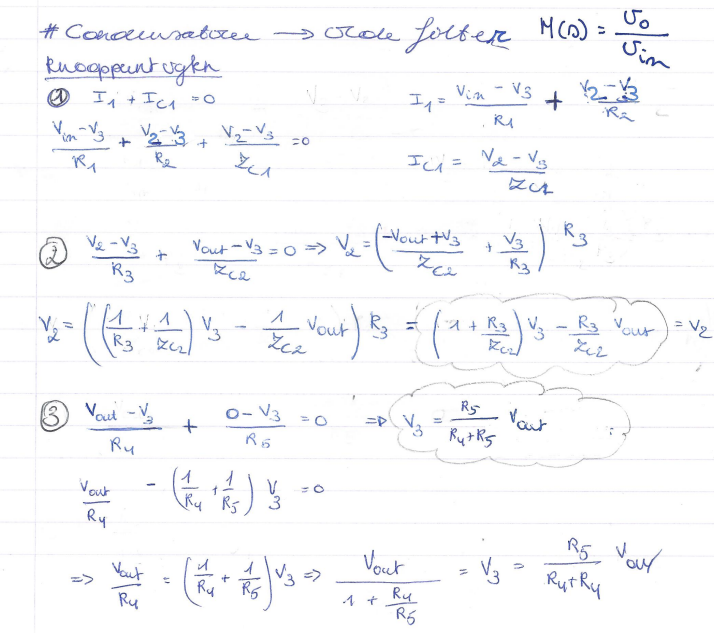 # Condensatoren → Orde filter M(s) = Uo / Uin
Knooppuntvgkn
① I1 + IC1 = 0 I1 = (Vin - V3)/R1 + (V2 - V3)/R2
(Vin - V3)/R1 + (V2 - V3)/R2 + (V2 - V3)/ZC1 = 0 IC1 = (V2 - V3)/ZC1
② (V2 - V3)/R3 + (Vout - V3)/ZC2 = 0 => V2 = ((-Vout + V3)/ZC2 + V3/R3) R3
V2 = ((1/R3 + 1/ZC2) V3 - 1/ZC2 Vout) R3 = (1 + R3/ZC2) V3 - R3/ZC2 Vout = V2
③ (Vout - V3)/R4 + (0 - V3)/R5 = 0 => V3 = R5/(R4+R5) Vout
Vout/R4 - (1/R4 + 1/R5) V3 = 0
=> Vout/R4 = (1/R4 + 1/R5) V3 => Vout/(1 + R4/R5) = V3 = R5/(R4+R4) Vout